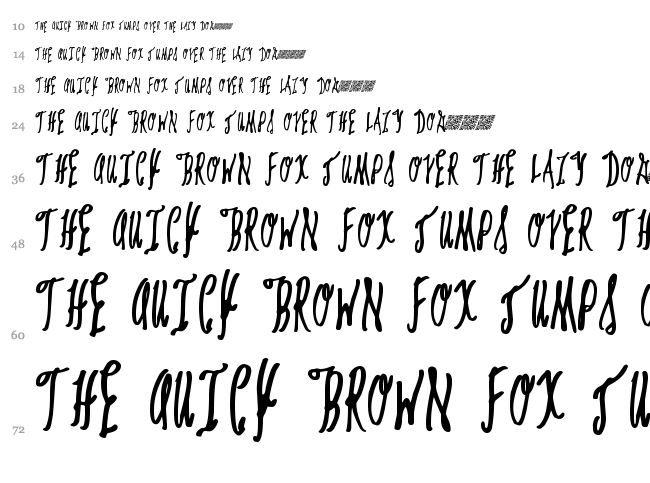 10 THE QUICK BROWN FOX JUMPS OVER THE LAZY DOG
14 THE QUICK BROWN FOX JUMPS OVER THE LAZY DOG
18 THE QUICK BROWN FOX JUMPS OVER THE LAZY DOG
24 THE QUICK BROWN FOX JUMPS OVER THE LAZY DOG
36 THE QUICK BROWN FOX JUMPS OVER THE LAZY DOG
48 THE QUICK BROWN FOX JUMPS OVER TH
60 THE QUICK BROWN FOX JUMPS
72 THE QUICK BROWN FOX JU